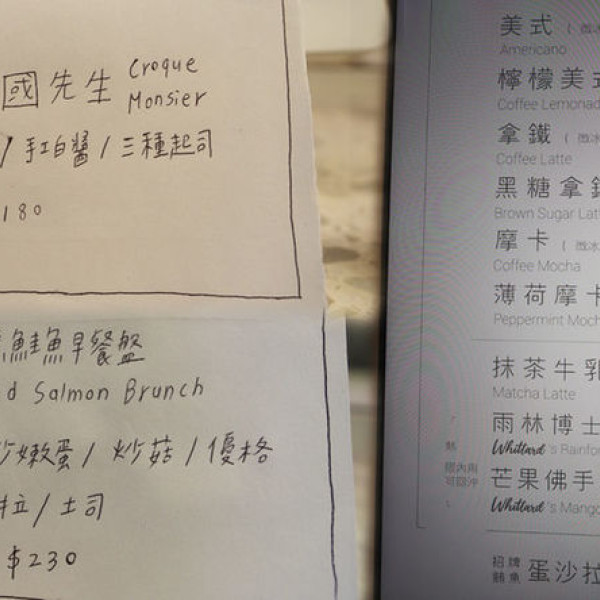 國先生 Croque
Monsier
/ 手工白醬 / 三種起司
180
鮭魚早餐盤
d Salmon Brunch
炒嫩蛋 / 炒菇 / 優格
拉 / 土司
$230
美式
Americano
檸檬美式
Coffee Lemonad
拿鐵 ( 微冰
Coffee Latte
黑糖拿鐵
Brown Sugar Lat
摩卡 ( 微冰
Coffee Mocha
薄荷摩卡
Peppermint Moch
抹茶牛乳
Matcha Latte
雨林博士
Whittard's Rainfo
芒果佛手
Whittard's Mango
熱
限內用
可回沖
招牌
鮪魚 蛋沙拉